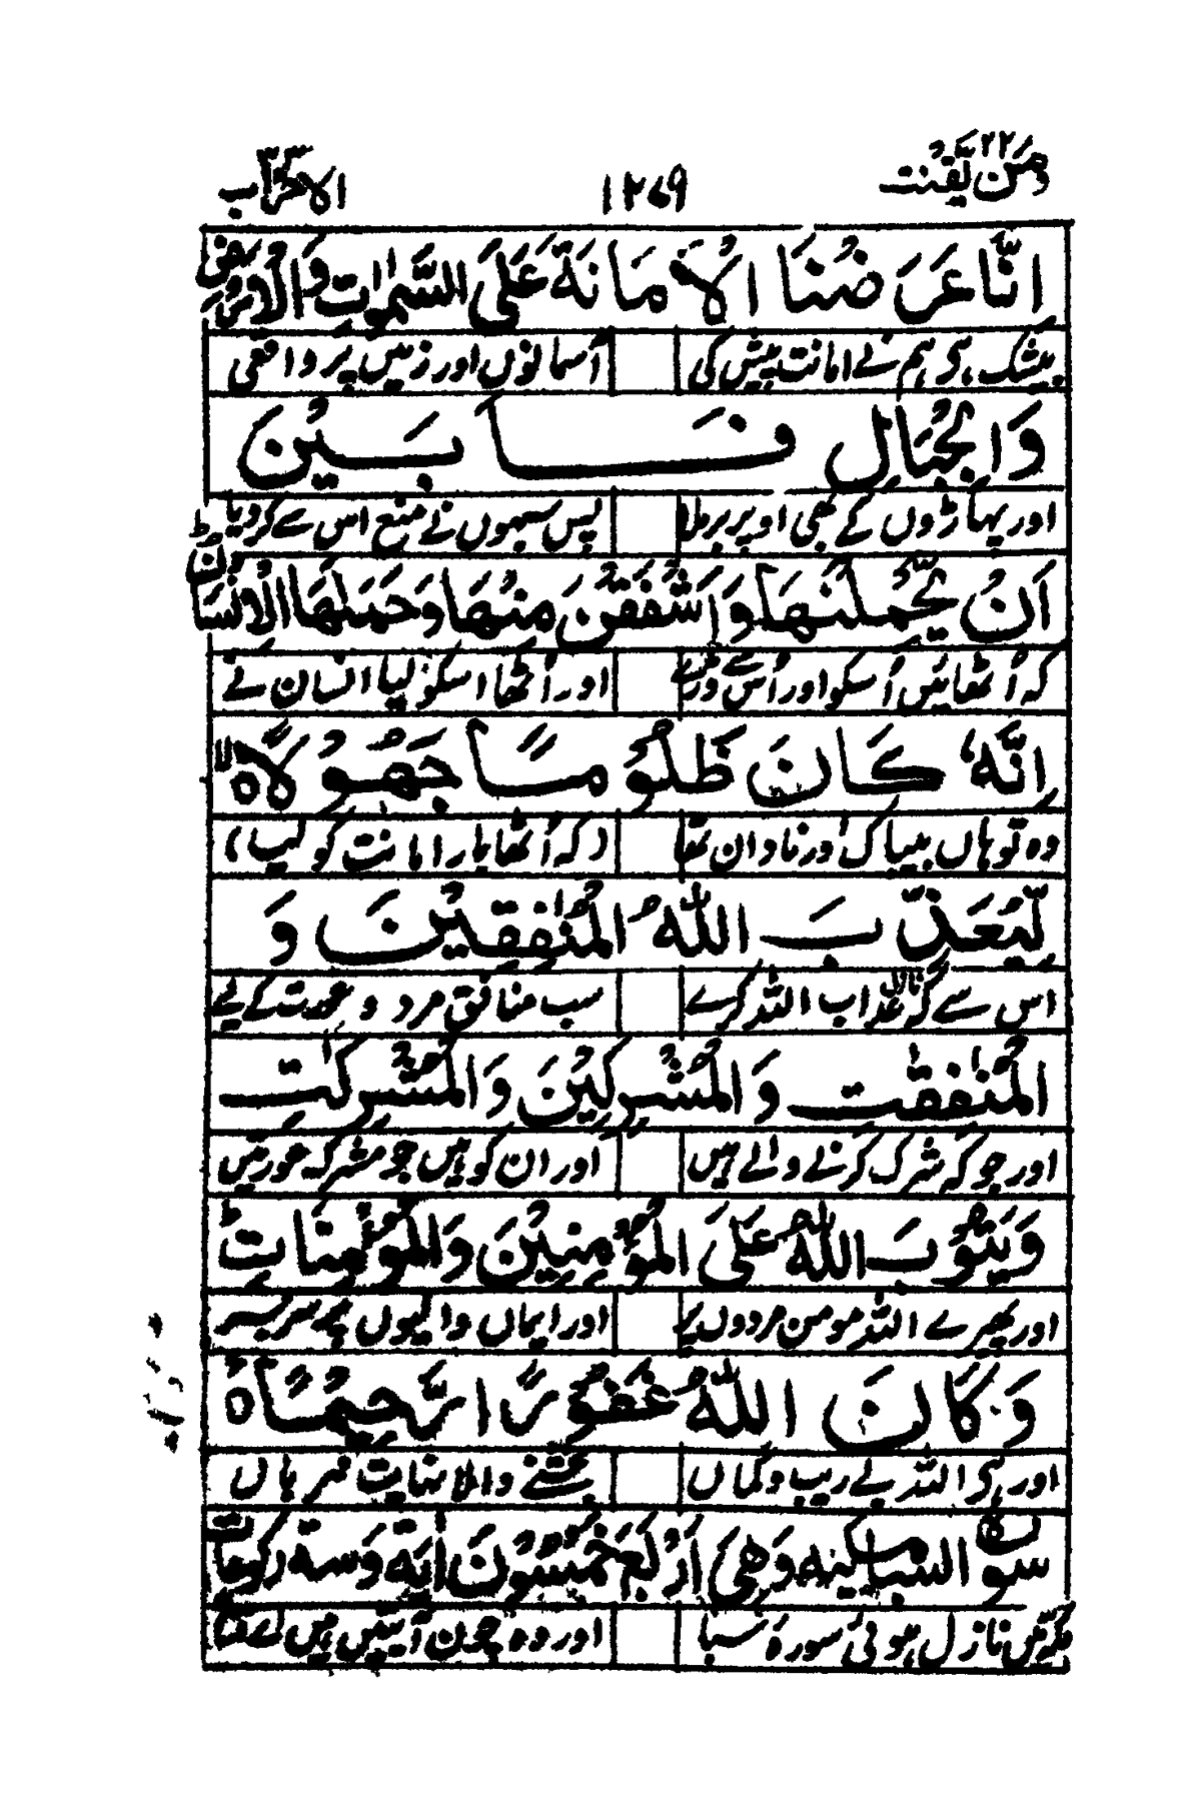 ومن یقنت ۲۲
۱۲۶۹
الاحزاب ۳۳
اِنَّا عَرَضْنَا الْاَمَانَةَ عَلَی السَّمٰوٰتِ وَالْاَرْضِ
بیشک ہے ہم نے امانت پیش کی آسمانوں اور زمیں پر واقعی
وَالْجِبَالِ فَاَبَیْنَ
اور پہاڑوں کے بھی اوپر برملا پس سبھوں نے منع اس سے کردیا
اَنْ یَّحْمِلْنَهَا وَاَشْفَقْنَ مِنْهَا وَحَمَلَهَا الْاِنْسَانُ ؕ
کہ اُٹھائیں اُسکو اور اُس سے ڈرے اور اُٹھا اسکو لیا انسان نے
اِنَّهٗ کَانَ ظَلُوْمًا جَهُوْلًا ۙ
وہ تو ہاں بیباک اور نادان تھا (کہ اُٹھا بار امانت کو لیا)
لِّیُعَذِّبَ اللّٰهُ الْمُنٰفِقِیْنَ وَ
اس سے کہ نازل عذاب اللہ کرے سب منافق مرد و عورت کے لیے
الْمُنٰفِقٰتِ وَالْمُشْرِکِیْنَ وَالْمُشْرِکٰتِ
اور جو کہ شرک کرنے والے ہیں اور ان کو ہیں جو مشرکہ عورتیں
وَیَتُوْبَ اللّٰهُ عَلَی الْمُؤْمِنِیْنَ وَالْمُؤْمِنَاتِ ؕ
اور پھیرے اللہ مومن مردوں پر اور ایماں والیوں پہ سربسر
وَکَانَ اللّٰهُ غَفُوْرًا رَّحِیْمًا
اور ہے اللہ بے ریب و گماں بخشنے والا نہایت مہرباں
سورة السبا مکیة وهی اَرْبَعَ خَمْسُوْنَ اٰیَةً وستة رکوعات
مکہ میں نازل ہوئی سورۂ سبا اور وہ چون آیتیں ہیں